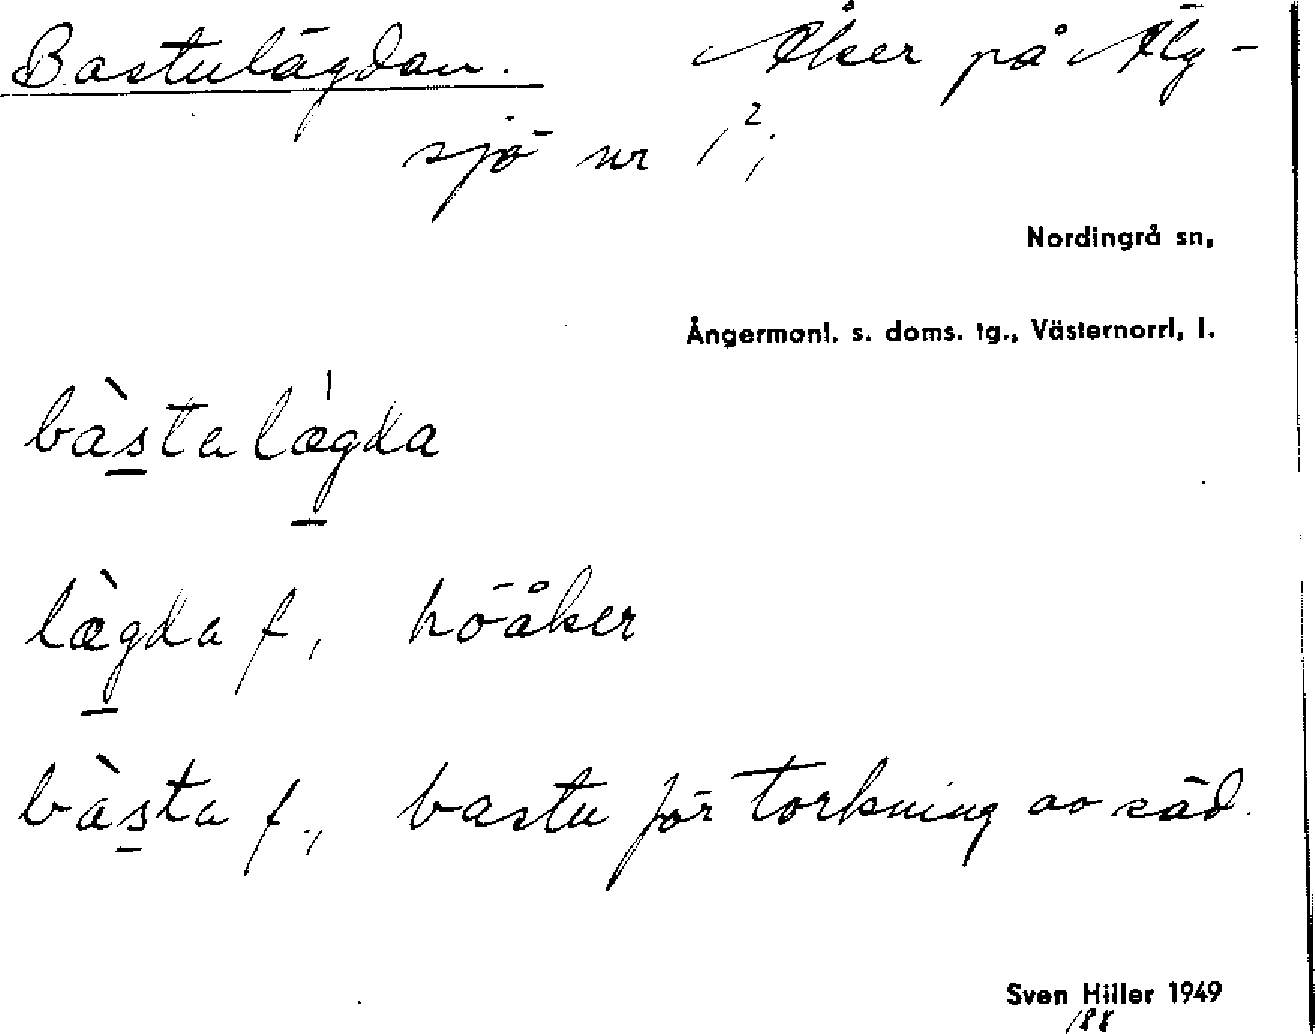 Bastulägdan. Åker på Älg-
sjö nr 1²;
Nordingrå sn,
Ångermanl. s. doms. tg., Västernorrl. l.
bàsta lægda
lægda f, höåker
bàsta f., bastu för torkning av säd.
Sven Hiller 1949
188